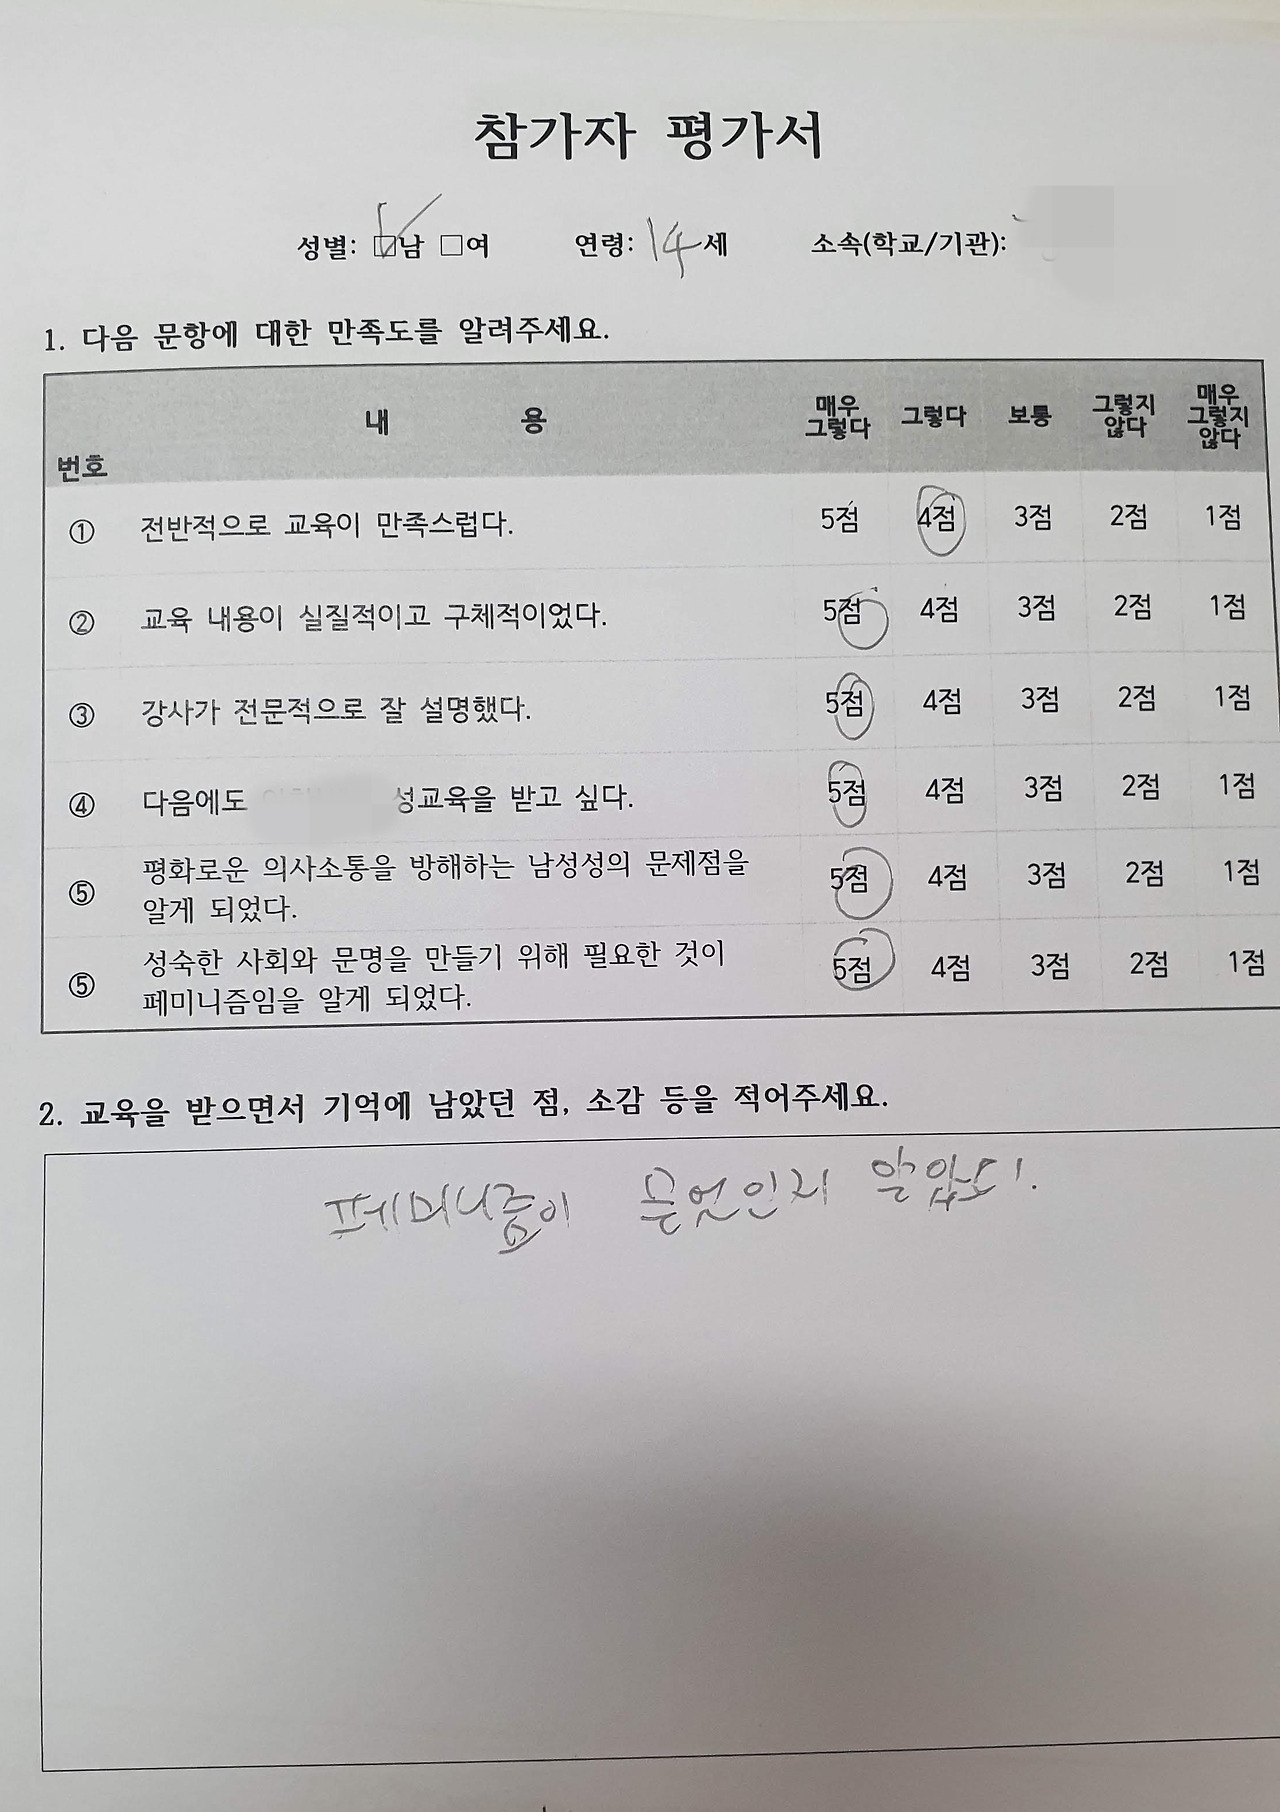 참가자 평가서
성별: □남 □여 연령: 14세 소속(학교/기관):
1. 다음 문항에 대한 만족도를 알려주세요.
번호 내 용 매우 그렇다 그렇다 보통 그렇지 않다 매우 그렇지 않다
① 전반적으로 교육이 만족스럽다. 5점 4점 3점 2점 1점
② 교육 내용이 실질적이고 구체적이었다. 5점 4점 3점 2점 1점
③ 강사가 전문적으로 잘 설명했다. 5점 4점 3점 2점 1점
④ 다음에도 성교육을 받고 싶다. 5점 4점 3점 2점 1점
⑤ 평화로운 의사소통을 방해하는 남성성의 문제점을 5점 4점 3점 2점 1점
알게 되었다.
⑤ 성숙한 사회와 문명을 만들기 위해 필요한 것이 5점 4점 3점 2점 1점
페미니즘임을 알게 되었다.
2. 교육을 받으면서 기억에 남았던 점, 소감 등을 적어주세요.
페미니즘이 무엇인지 알았다.